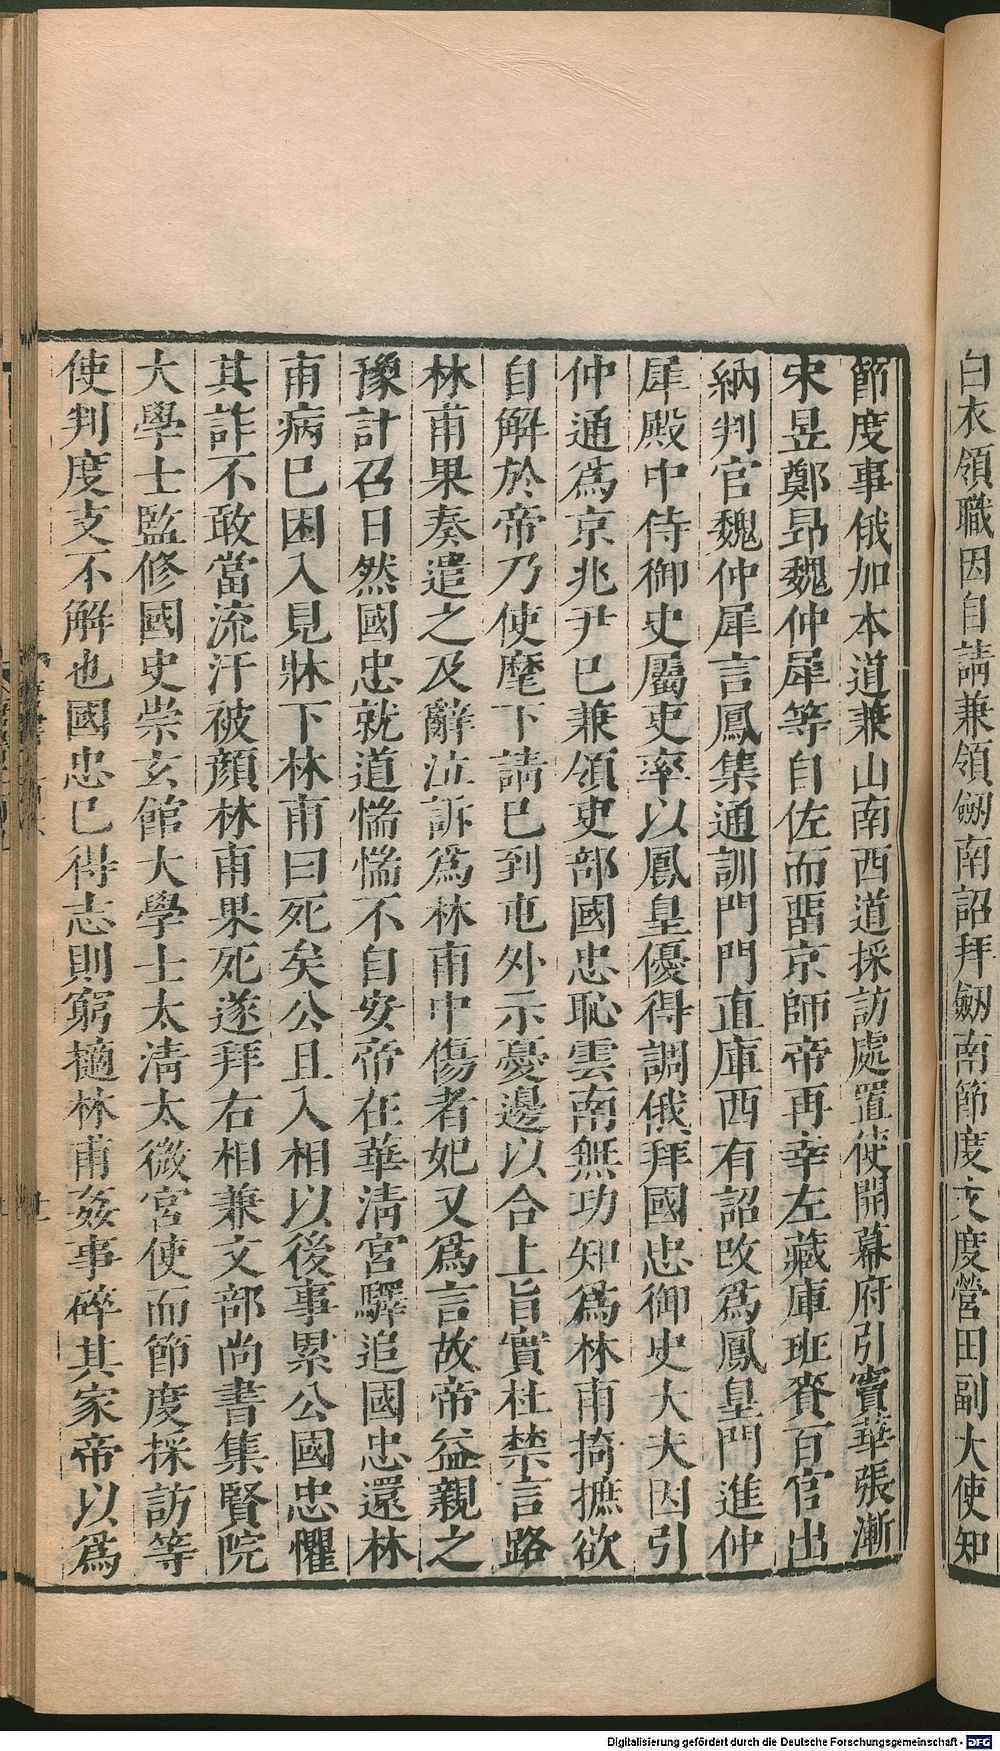 白衣領職因自請兼領劒南詔拜劒南節度支度營田副大使知
節度事俄加本道兼山南西道採訪處置使開幕府引竇華張漸
宋昱鄭昻魏仲犀等自佐而畱京師帝再幸左藏庫班賚百官出
納判官魏仲犀言鳳集通訓門門直庫西有詔改爲鳳皇門進仲
犀殿中侍御史屬吏率以鳳皇優得調俄拜國忠御史大夫因引
仲通爲京兆尹已兼領吏部國忠恥雲南無功知爲林甫掎摭欲
自解於帝乃使麾下請已到屯外示憂邊以合上旨實杜禁言路
林甫果奏遣之及辭泣訴爲林甫中傷者妃又爲言故帝益親之
豫計召日然國忠就道惴惴不自安帝在華淸宮驛追國忠還林
甫病已困入見牀下林甫曰死矣公且入相以後事累公國忠懼
其詐不敢當流汗被顏林甫果死遂拜右相兼文部尚書集賢院
大學士監修國史崇玄館大學士太淸太微宮使而節度採訪等
使判度支不解也國忠已得志則窮擿林甫姦事碎其家帝以爲
Digitalisierung gefördert durch die Deutsche Forschungsgemeinschaft - DFG